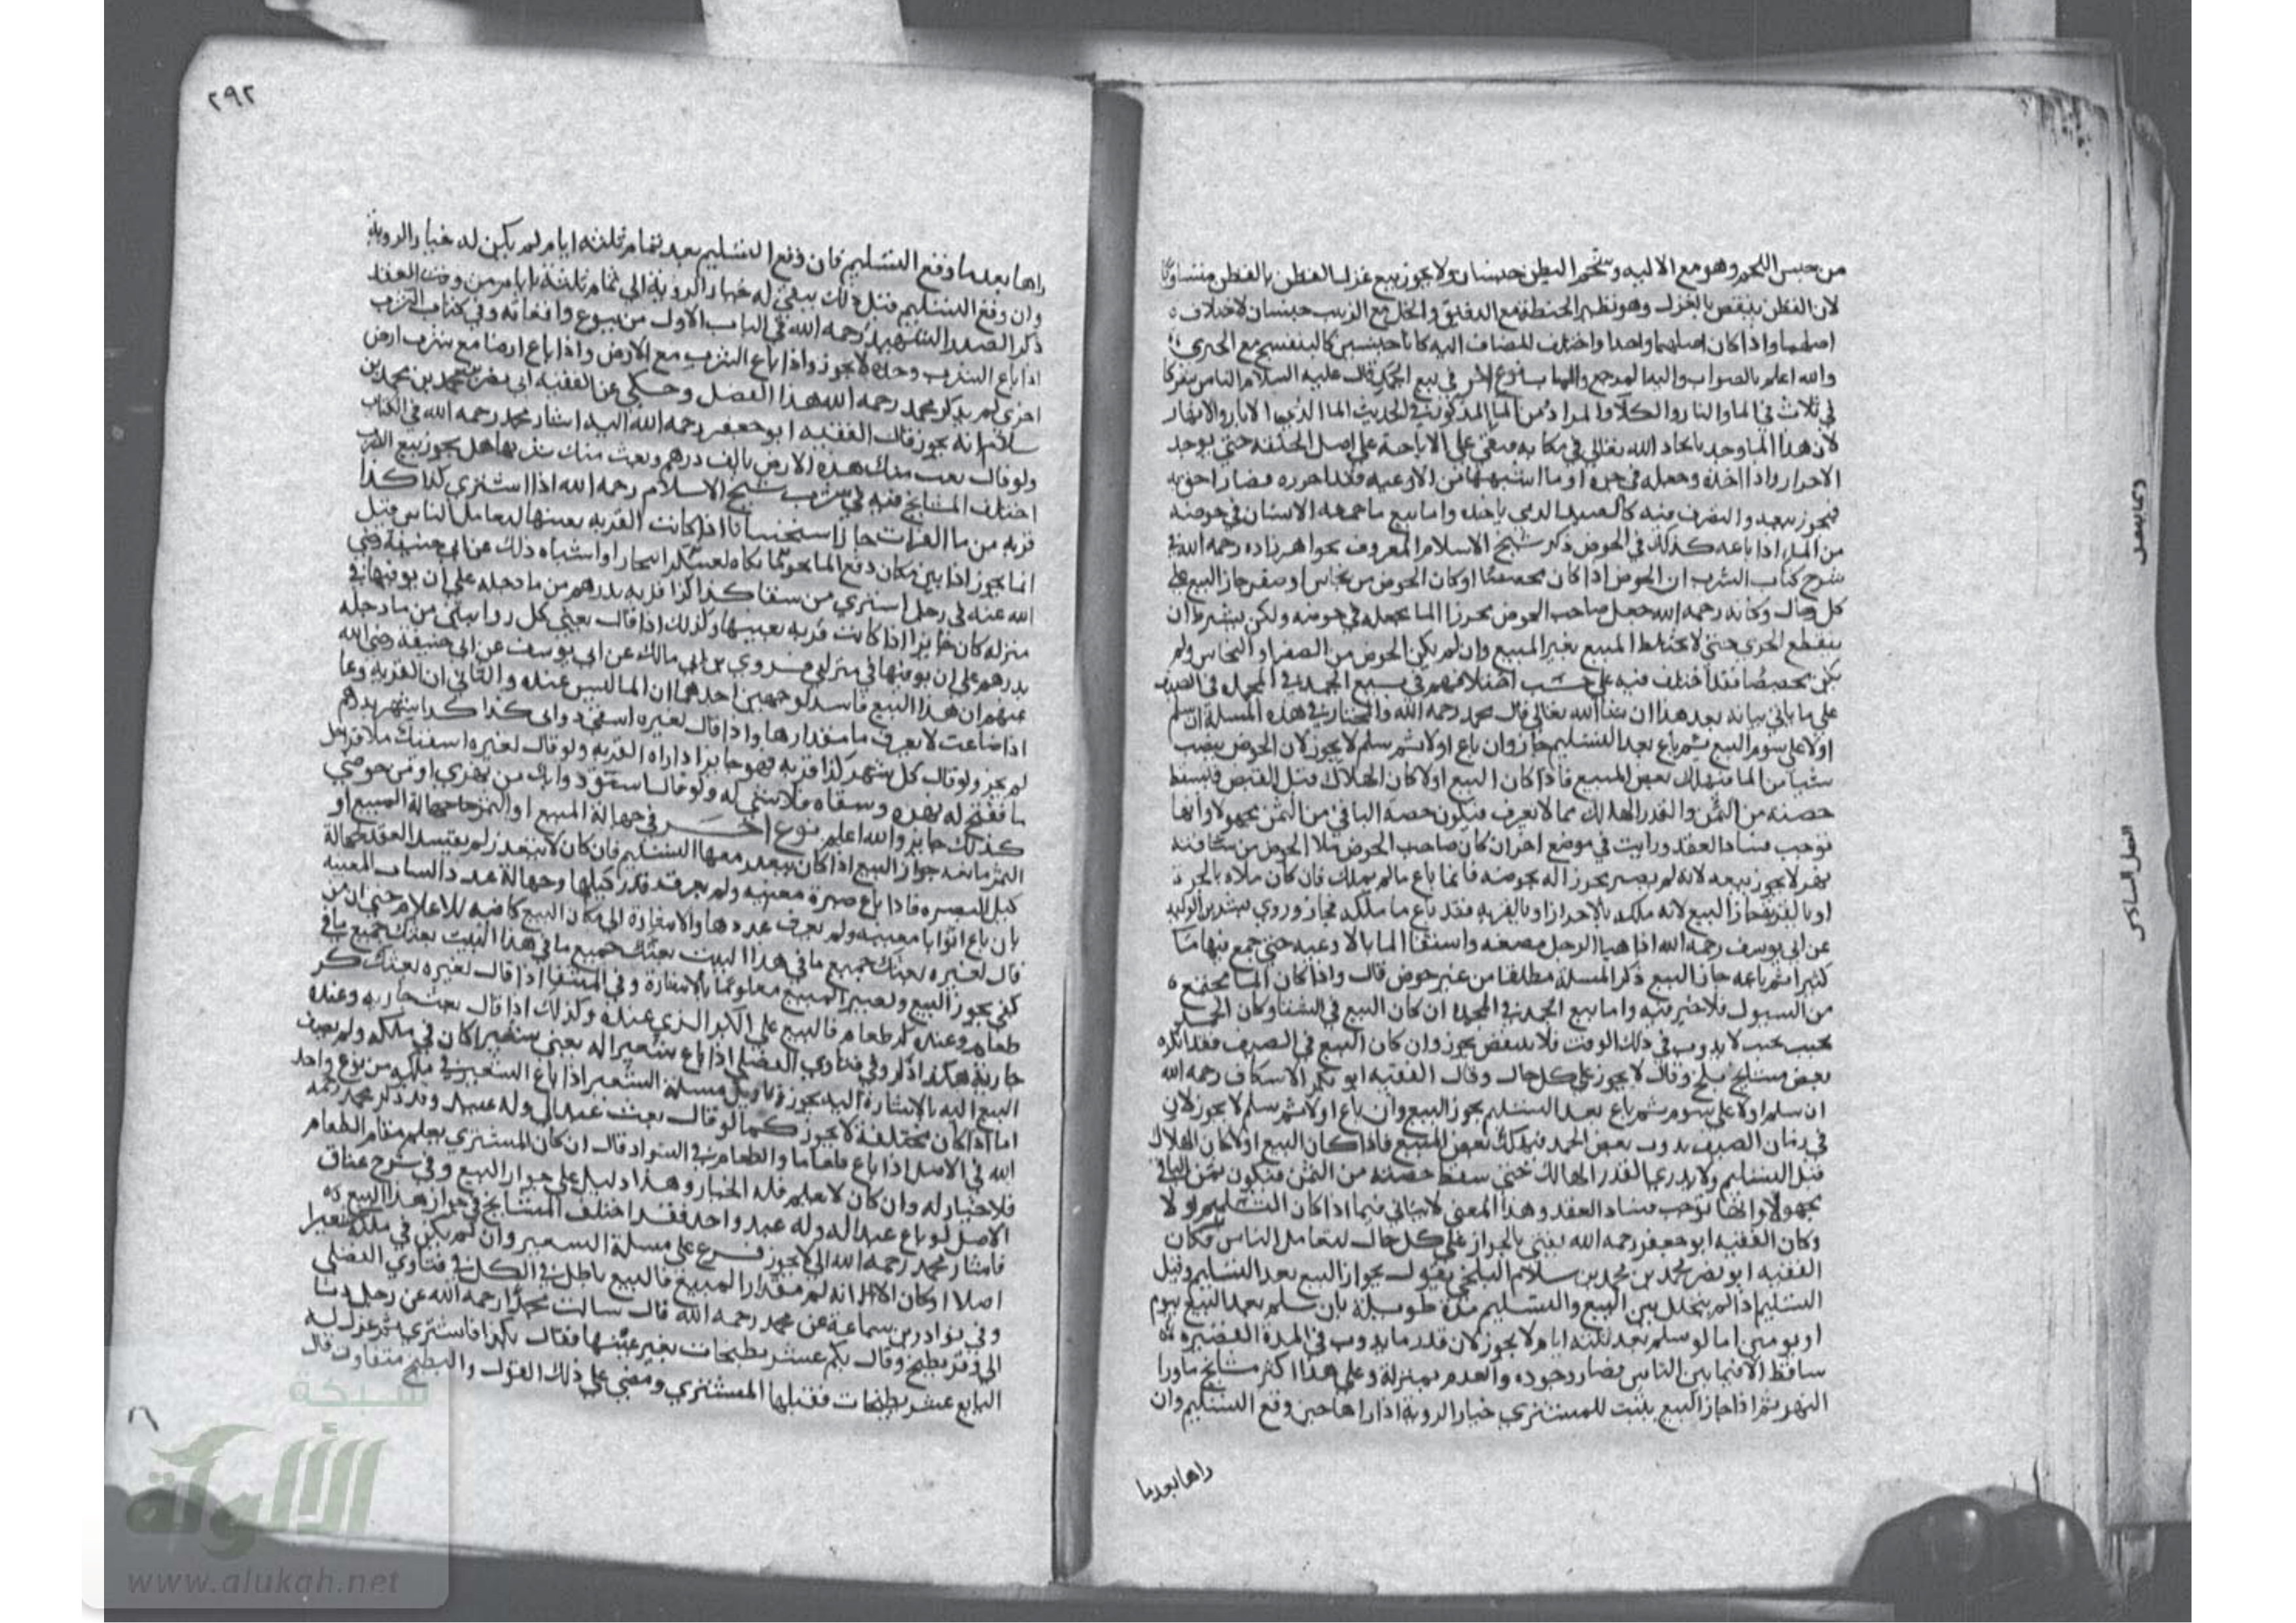 من جنس اللحم وهو مع الاليه وشحم البطن جنسان ولا يجوز بيع غزل القطن بالقطن متساويا
لان القطن ينقص بالغزل وهو نظير الحنطة مع الدقيق والخل مع الزبيب جنسان لاختلاف
اصلهما واذا كان اصلهما واحدا واختلف المضاف اليه كانا جنسين كالبنفسج مع الخيري
والله اعلم بالصواب واليه المرجع والماب نوع اخر في بيع الجمد قال عليه السلام الناس شركا
في ثلاث في الما والنار والكلا والمراد من الما المذكور في الحديث الما الذي في الابار والانهار
لان هذا الما وجد باتحاد الله تعالي في مكانه فيبقي علي الاباحة علي اصل الخلقة حتي يوجد
الاحراز واذا اخذه وجعله في جرة او ما اشبهها من الاوعيه فقد احرزه فصار احق به
فيجوز بيعه والتصرف فيه كالصيد الذي ياخذه واما بيع ما جمعه الانسان في حوضه
من الما اذا باعه كذلك في الحوض ذكر شيخ الاسلام المعروف بخواهر زاده رحمه الله في
شرح كتاب الشرب ان الحوض اذا كان مجصصا او كان الحوض من نحاس او صفر جاز البيع علي
كل حال وكانه رحمه الله جعل صاحب الحوض محرزا الما بجعله في حوضه ولكن يشترط ان
ينقطع الجري حتي لا يختلط المبيع بغير المبيع وان لم يكن الحوض من الصفر او النحاس ولم
يكن مجصصا فقد اختلف فيه علي حسب اختلافهم في بيع الجمد في المجمدة في الصيف
علي ما ياتي بيانه بعد هذا ان شا الله تعالي قال محمد رحمه الله والمختار في هذه المسلة ان سلم
اولا علي سوم البيع ثم باع بعد التسليم جاز وان باع اولا ثم سلم لا يجوز لان الحوض ينصب
شيا من الما فيهلك بعض المبيع فاذا كان البيع اولا كان الهلاك قبل القبض فيسقط
حصته من الثمن والقدر الهالك مما لا يعرف فيكون حصة الباقي من الثمن مجهولا وانها
توجب فساد العقد ورايت في موضع اخر ان كان صاحب الحوض ملا الحوض من
نهر لا يجوز بيعه لانه لم يصر محرزا له بحوضه فانما باع مالم يملك فان كان ملاه بالجرة
او بالقربة جاز البيع لانه ملكه بالاحراز او بالقربة فقد باع ما ملكه فجاز وروي بشر بن الوليد
عن ابي يوسف رحمه الله اذا هيا الرجل مصنعه واستقا الما بالاوعيه حتي جمع فيها ما
كثيرا ثم باعه جاز البيع ذكر المسلة مطلقا من غير حوض قال واذا كان الما يجتمع
من السيول فلا خير فيه واما بيع الجمد في المجمدة ان كان البيع في الشتا وكان الجمد
بحيث لا يذوب في ذلك الوقت فلا ينقص يجوز وان كان البيع في الصيف فقد انكره
بعض مشايخ بلخ وقال لا يجوز علي كل حال وقال الفقيه ابو بكر الاسكاف رحمه الله
ان سلم اولا علي سوم ثم باع بعد التسليم يجوز البيع وان باع اولا ثم سلم لا يجوز لان
في زمان الصيف يذوب بعض الجمد فيهلك بعض المبيع فاذا كان البيع اولا كان الهلاك
قبل التسليم ولا يدري القدر الهالك حتي سقط حصته من الثمن فيكون ثمن الباقي
مجهولا وانها توجب فساد العقد وهذا المعني لا يتاتي فيما اذا كان التسليم اولا
وكان الفقيه ابو جعفر رحمه الله يفتي بالجواز علي كل حال لتعامل الناس وكان
الفقيه ابو نصر محمد بن محمد بن سلام البلخي يقول بجواز البيع بعد التسليم وقبل
التسليم اذا لم يتخلل بين البيع والتسليم مدة طويلة بان سلم بعد البيع بيوم
او يومين اما لو سلم بعد ثلثه ايام لا يجوز لان قدر ما يذوب في المدة القصيرة
ساقط الاقيما بين الناس فصار وجوده والعدم بمنزلة وعلي هذا اكثر مشايخ ماورا
النهر ثم اذا جاز البيع يثبت للمشتري خيار الروية اذا راها حين وقع التسليم وان
راها بعد ما
٢٩٢
راها بعد ما وقع التسليم فان وقع التسليم بعد تمام ثلثه ايام لم يكن له خيار الروية
وان وقع التسليم قبل ذلك يبقي له خيار الروية الي تمام ثلثة ايام من وقت العقد
ذكر الصدر الشهيد رحمه الله في الباب الاول من بيوع واقعاته وفي كتاب الشرب
اذا باع الشرب وحده لا يجوز واذا باع الشرب مع الارض واذا باع ارضا مع شرب ارض
اخري لم يذكر محمد رحمه الله هذا الفصل وحكي عن الفقيه ابي نصر محمد بن محمد بن
سلام انه يجوز قال الفقيه ابو جعفر رحمه الله اليه اشار محمد رحمه الله في الكتاب
ولو قال بعت منك هذه الارض بالف درهم وبعت منك شربها هل يجوز بيع الشرب
اختلف المشايخ فيه في شرب شيخ الاسلام رحمه الله اذا اشتري كذا كذا
قربة من ما الفرات جاز استحسانا اذا كانت القربه بعينها لتعامل الناس قيل
انما يجوز اذا بين مكان دفع الما
الله عنه في رجل اشتري من سقا كذا كذا قربه بدرهم من ما دجله علي ان يوفيها في
منزله كان جايزا اذا كانت قربه بعينها وكذلك اذا قال بعني كل من ما دجله
بدرهم علي ان يوفيها في منزلي وروي بن ابي مالك عن ابي يوسف عن ابي حنيفة رضي الله
عنهم ان هذا البيع فاسد لوجهين احدهما ان الما ليس عنده والثاني ان القربه وعا
اذا ضاعت لا يعرف ما مقدارها واذا قال لغيره اسقي دوابي كذا كذا شهر بدرهم
لم يجز ولو قال كل شهر كذا قربه فهو جايز اذا اراه القربه ولو قال لغيره
ولو قال اسق دوابك من نهري او من حوضي
كذلك جايز والله اعلم نوع اخر في جهالة المبيع او الثمن جهالة المبيع او
الثمن مانعه جواز البيع اذا كان يتعذر معها التسليم فان كان لا يتعذر لم يفسد العقد كجهالة
كيل الصبره فاذا باع صبرة معينه ولم يعرف قدر كيلها وجهالة عدد الثياب المعينه
بان باع اثوابا معينه ولم يعرف عددها والاشارة الي مكان البيع كافيه للاعلام حتي ان من
قال لغيره بعتك جميع ما في هذا البيت بعتك جميع ما في هذا البيت بعتك جميع ما في
كفي يجوز البيع ويصير المبيع معلوما بالاشارة وفي المنتقا اذا قال لغيره بعتك كر
طعام وعنده كر طعام فالبيع علي الكر الذي عنده وكذلك اذا قال بعت جاريه وعنده
جارية هكذا ذكر وفي فتاوي الفضلي اذا باع شعيرا له يعني شعيرا كان في ملكه ولم يعرف
البيع اليه بالاشارة اليه يجوز وتاويل مسلة الشعير اذا باع الشعير في ملكه من نوع واحد
اما اذا كان مختلفة لا يجوز كما لو قال بعت عبدا لي وله عبيد وقد ذكر محمد رحمه
الله في الاصل اذا باع طعاما والطعام في السواد قال ان كان المشتري يعلم مقام الطعام
فلا خيار له وان كان لا يعلم فله الخيار وهذا دليل علي جواز البيع وفي شرح عتاق
الاصل لو باع عبدا له وله عبد واحد فقد اختلف المشايخ في جواز هذا البيع
فاشار محمد رحمه الله الي لا يجوز فرع علي مسلة الشعير وان لم يكن في ملكه شعيرا
اصلا او كان الا انه لم مقدار المبيع فالبيع باطل في الكل في فتاوي الفضلي
وفي نوادر بن سماعة عن محمد رحمه الله قال سالت محمدا رحمه الله عن رجل دنا
الي وقر بطيخ وقال بكم عشر بطيخات بغير عينها فقال بكذا فاشتري ثم عزل له
البايع عشر بطيخات فقبلها المشتري ومضي علي ذلك القول والبطيخ متفاوت قال
شبكة
الألوكة
www.alukah.net